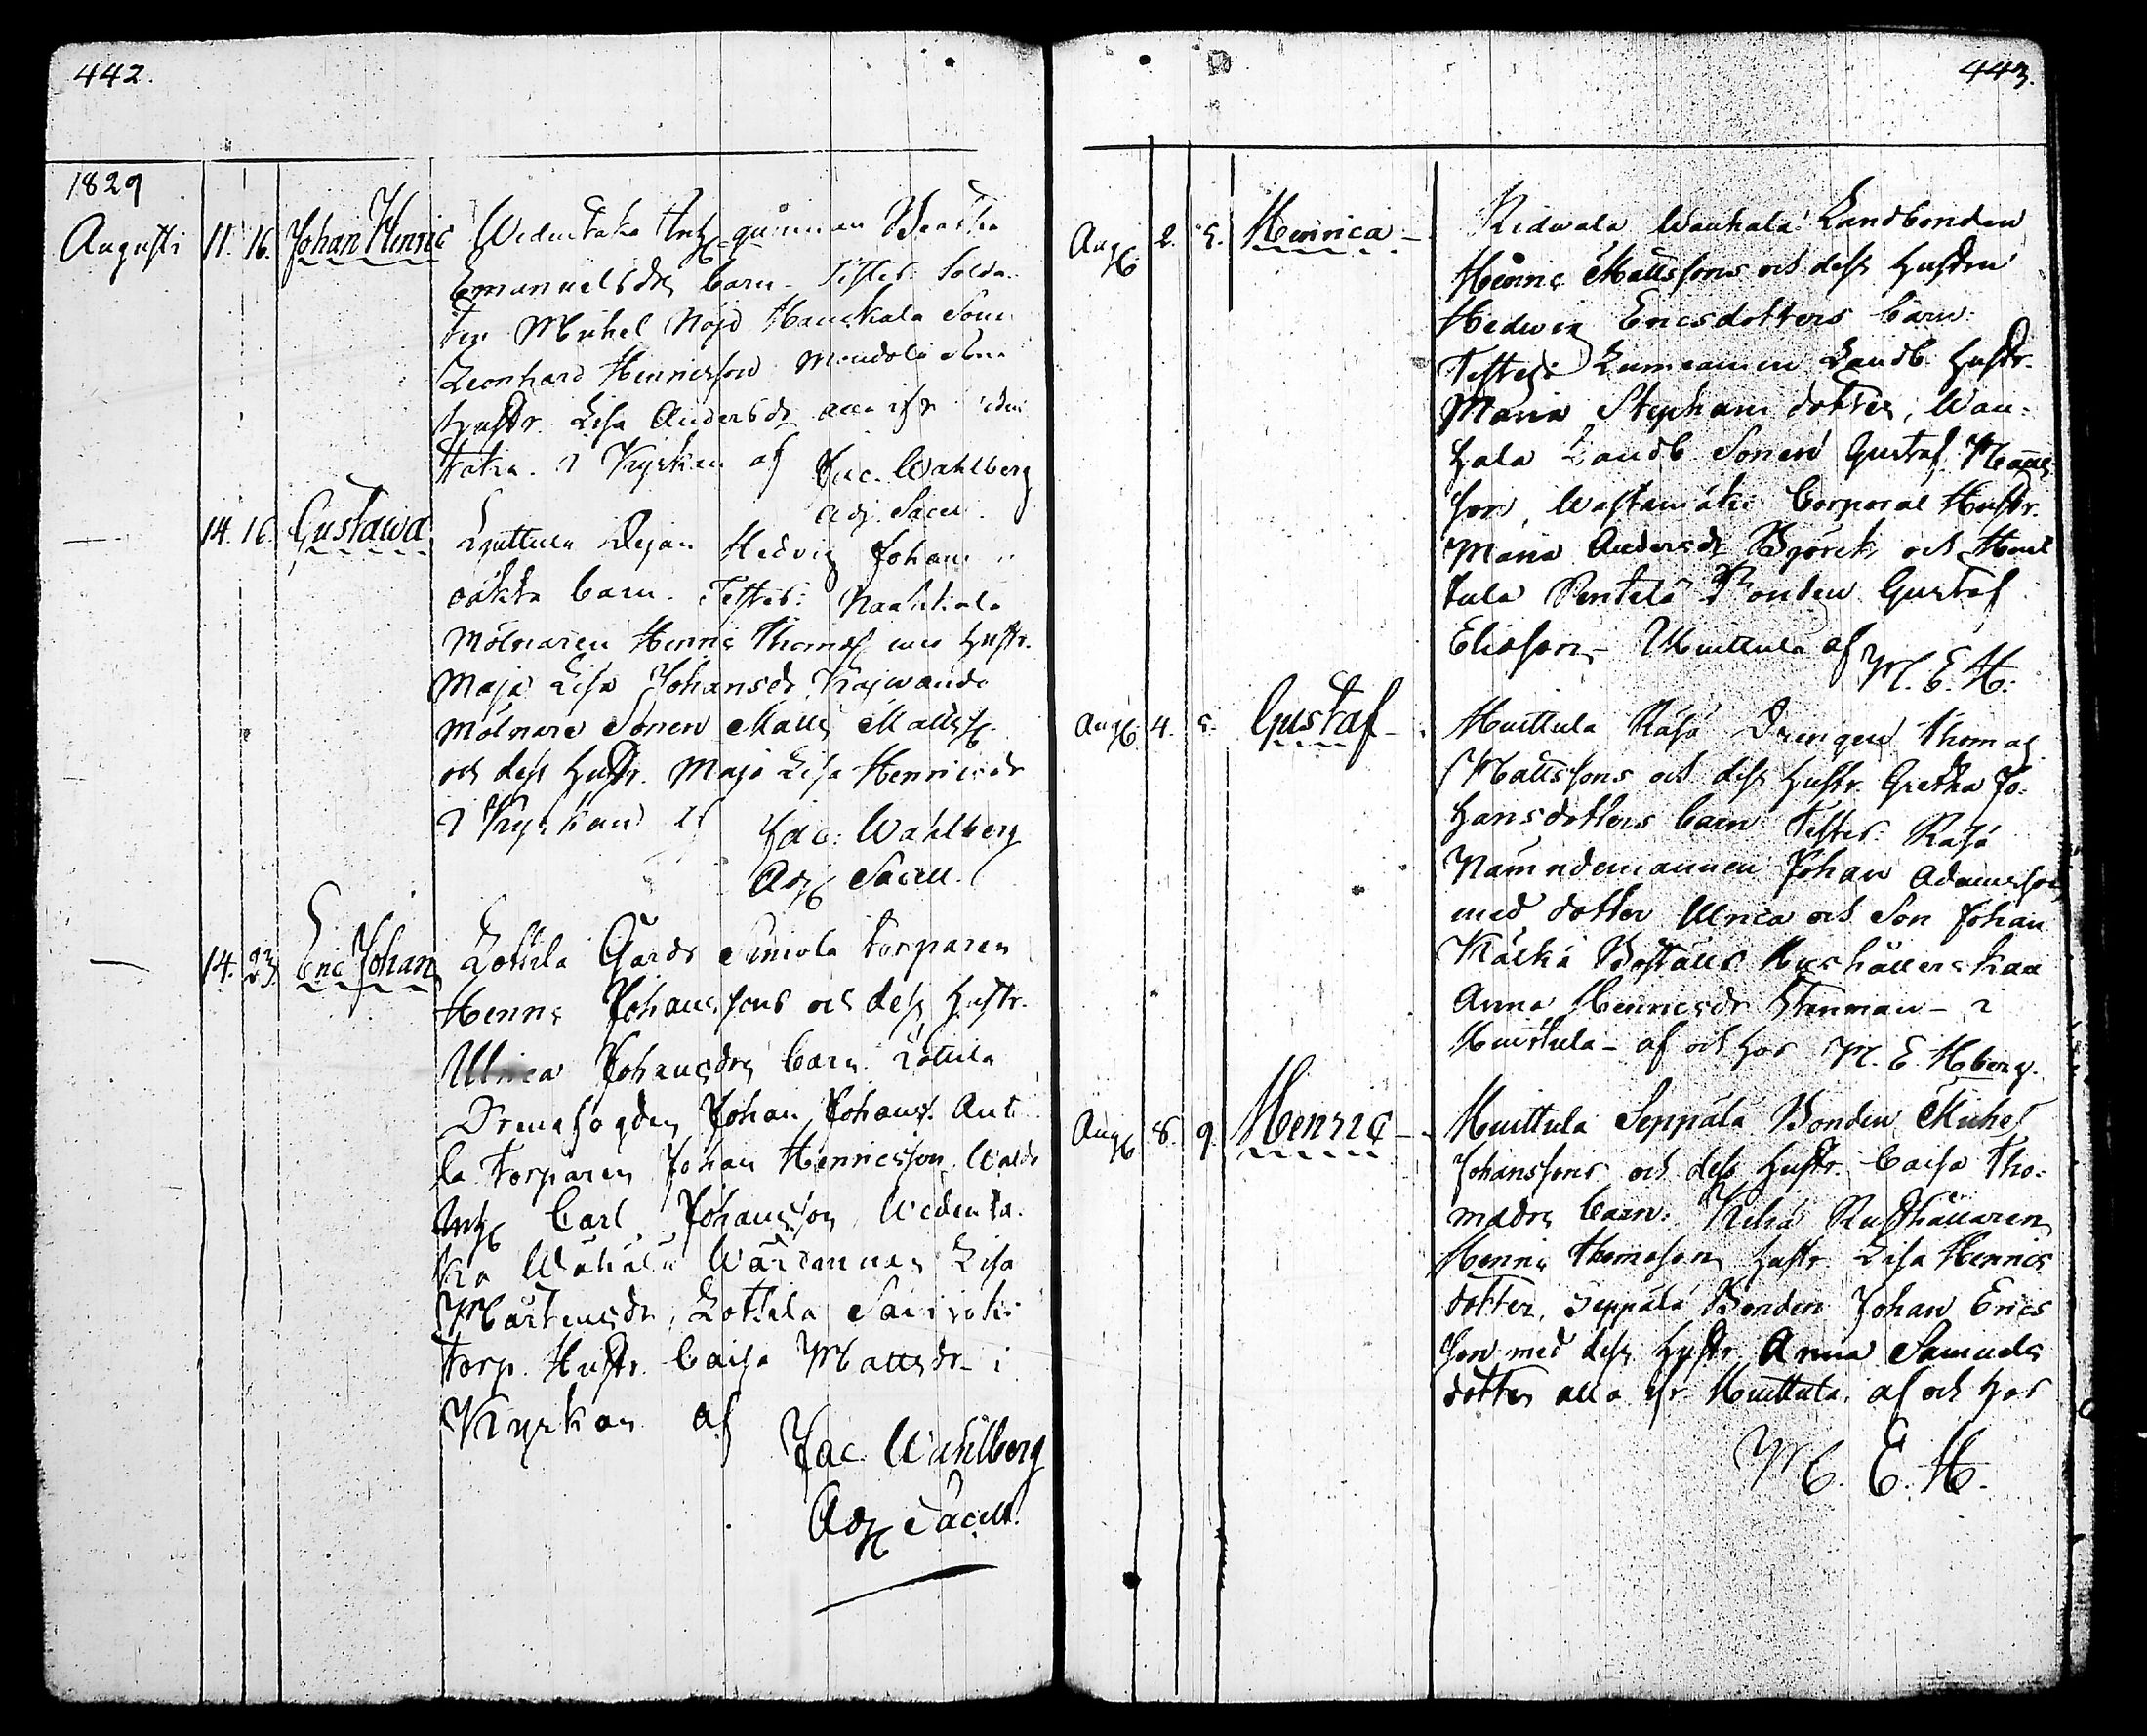 442.
1829
Augusti 11. 16. Johan Henric Widentaka Inh. qvinnan
Emanuelsdrs barn. Testes: Solda-
ten Michel Nöjd Hauskala Son
Leonhard Henricsson
Hustr. Lisa Andersdr
taka. i Kyrkan af Jac. Wahlberg
Adj. Sacell.
14. 16. Gustawa Pigan Hedvig Johans
oäkta barn. Testes: Naakkala
Mölnaren Henric Thomass. med Hustr.
Maja Lisa Johansdr
Mölnare Sonen Matts Mattss.
och dess Hustr. Maja Lisa Henricsdr
i Kyrkan af Jac: Wahlberg
Adj. Sacell.
14. 23. Eric Johan Lottila Gårds Simola Torparen
Henric Johanssons och dess Hustr.
Ulrica Johansdrs barn. Lottila
Johan Johanss. Ant-
la Torparen Johan Henricsson,
Inh. Carl Johansson, Widenta-
ka Lisa
Mårtensdr, Lottila
Torp. Hustr. Caisa Mattsdr i
Kyrkan af
Jac. Wahlberg
Adj. Sacell.
443.
Aug. 2. 5. Henrica - Ridwala Wanhala Landbonden
Henric Mattssons och dess Hustru
Hedwig Ericsdotters barn:
Testes: Landb. Hustr.
Maria Stephansdotter, Wan-
hala Landb. Sonen Gustaf Matts-
son, Corporal Hustr.
Maria Andersdr Björck och Huit-
tula Pentilä Bonden Gustaf
Eliasson, Huittula af M. E. H.
Aug. 4. 5. Gustaf - Huittula Rasa Drengen Thomas
Mattssons och dess Hustr. Gretha Jo-
hansdotters barn: Testes: Rasa
Nämndemannen Johan Adamsson
med dotter Ulrica och Son Johan
Kälkä Boställs Hushållerskan
Anna Henricsdr Stenman - i
Huittula - af och hos M. E. Hberg.
Aug. 8. 9. Henric - Huittula Seppälä Bonden Michel
Johanssons och dess Hustr. Caisa Tho-
masdrs barn: Rusthållaren
Henric Thomasson Hustr. Lisa Henrics
dotter, Seppälä Bonden Johan Erics
son med dess Hustr. Anna Samuels
dotter alla ifr. Huittula, af och hos
M. E. H.